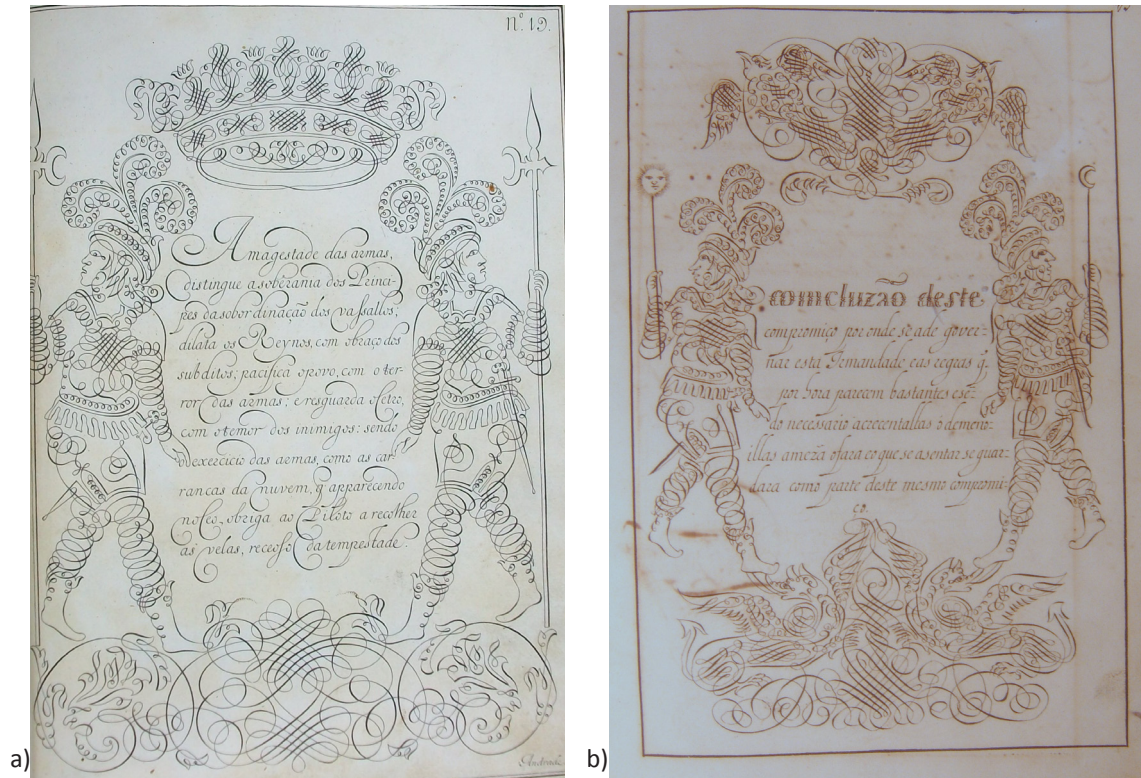 Nº. 19.
A magestade das armas,
distingue a soberania dos Princi-
pes da sobordinação dos vassallos;
dilata os Reynos, com obraço dos
subditos; pacifica opovo, com o ter-
ror das armas; e resguarda oſetro,
com otemor dos inimigos: sendo
oexercicio das armas, como as car-
rancas da nuvem, q̃ apparecendo
no Ceo, obriga ao Piloto a recolher
as velas, receoso da tempestade.
Andrade
a)
comcluzão deste
compromiço por onde se ade gover-
nar esta Irmandade eas regras q̃.
por hora parecem bastantes ese-
do necessario acrecentallas
illas ameza ofara eo que se asentar se guar-
dara como parte deste mesmo compromi-
ço.
b)